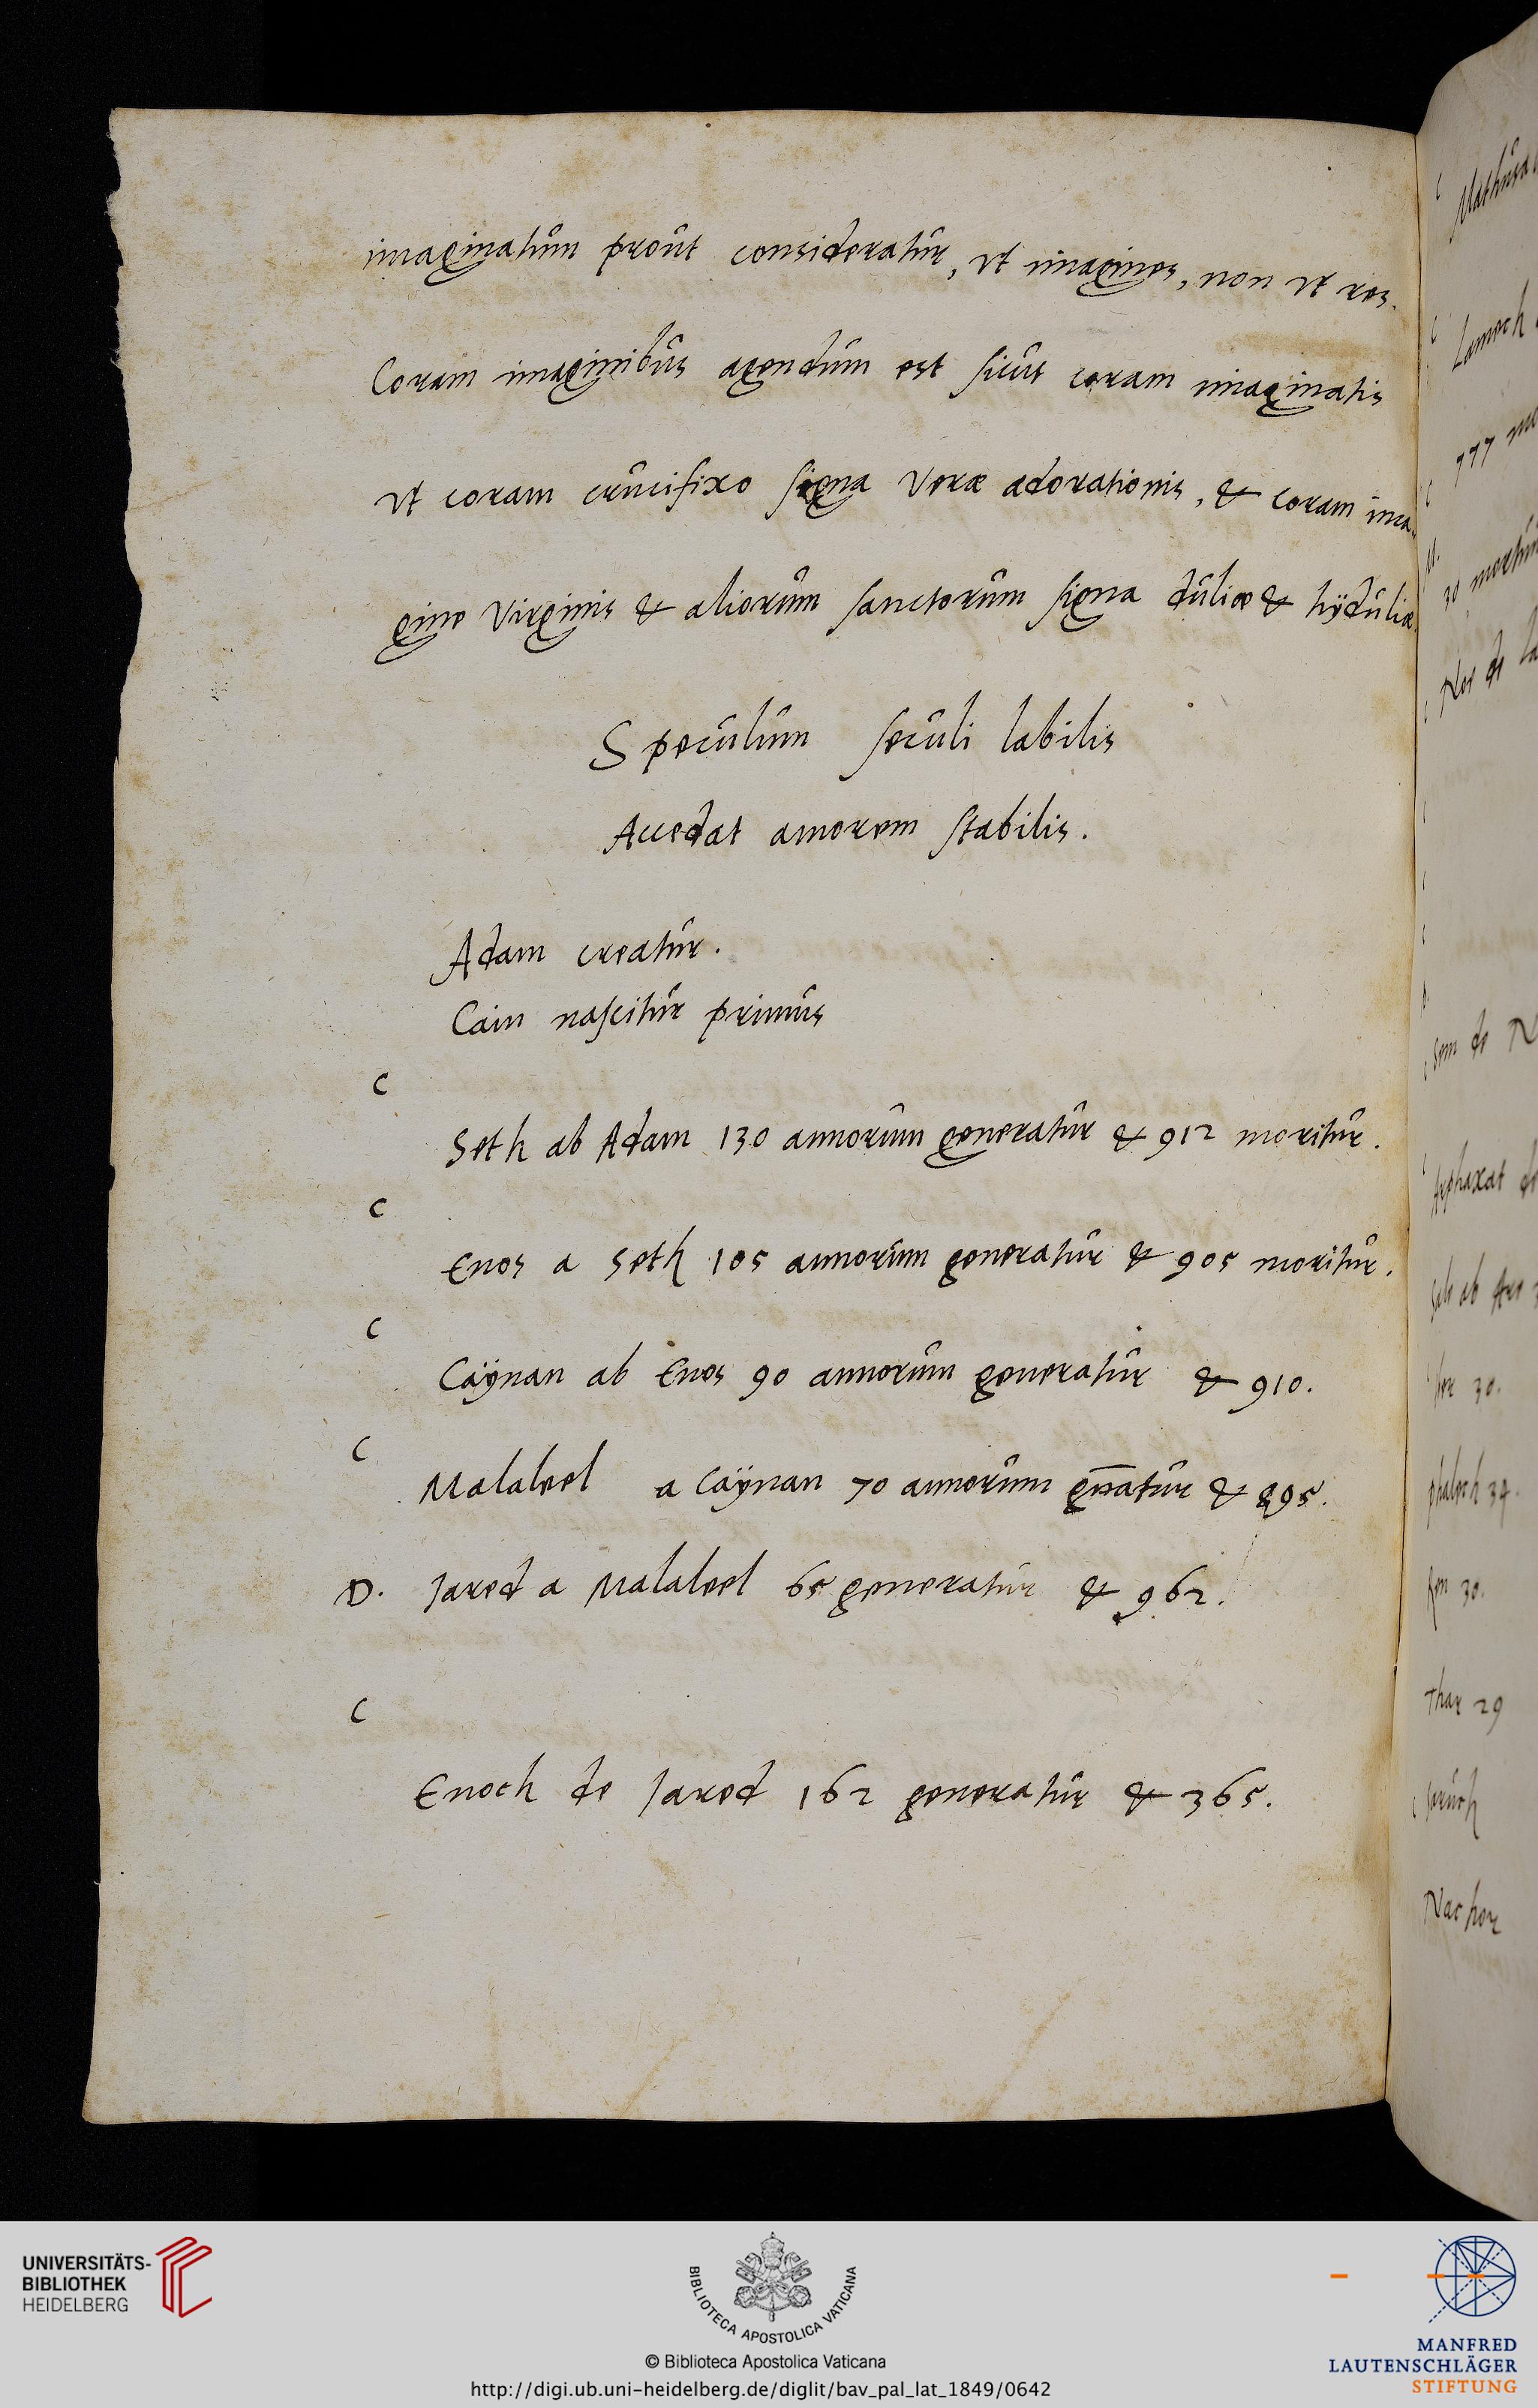 imaginatum prout consideratur, ut imagines, non ut res.
Coram imaginibus agendum est sicut coram imaginatis
ut coram crucifixo signa veræ adorationis, & coram ima-
gine Virginis & aliorum sanctorum signa duliæ & hÿduliæ.
Speculum seculi labilis
Accedat amorem stabilis.
Adam creatur.
Cain nascitur primus
C
Seth ab Adam 130 annorum generatur & 912 moritur.
C
Enos a Seth 105 annorum generatur & 905 moritur.
C
Caÿnan ab Enos 90 annorum generatur & 910.
C
Malaleel a Caÿnan 70 annorum gn̄atur & 895.
D. Jared a Malaleel 65 generatur & 962.
C
Enoch de Jared 162 generatur & 365.
Lamech
777
30
Noe de
Sem de N
Arphaxat de
Sale ab Ar
30.
phalech 34.
Reu 30.
Thar 29
Seruch
Nachor
UNIVERSITÄTS-
BIBLIOTHEK
HEIDELBERG
BIBLIOTECA APOSTOLICA VATICANA
© Biblioteca Apostolica Vaticana
http://digi.ub.uni-heidelberg.de/diglit/bav_pal_lat_1849/0642
MANFRED
LAUTENSCHLÄGER
STIFTUNG